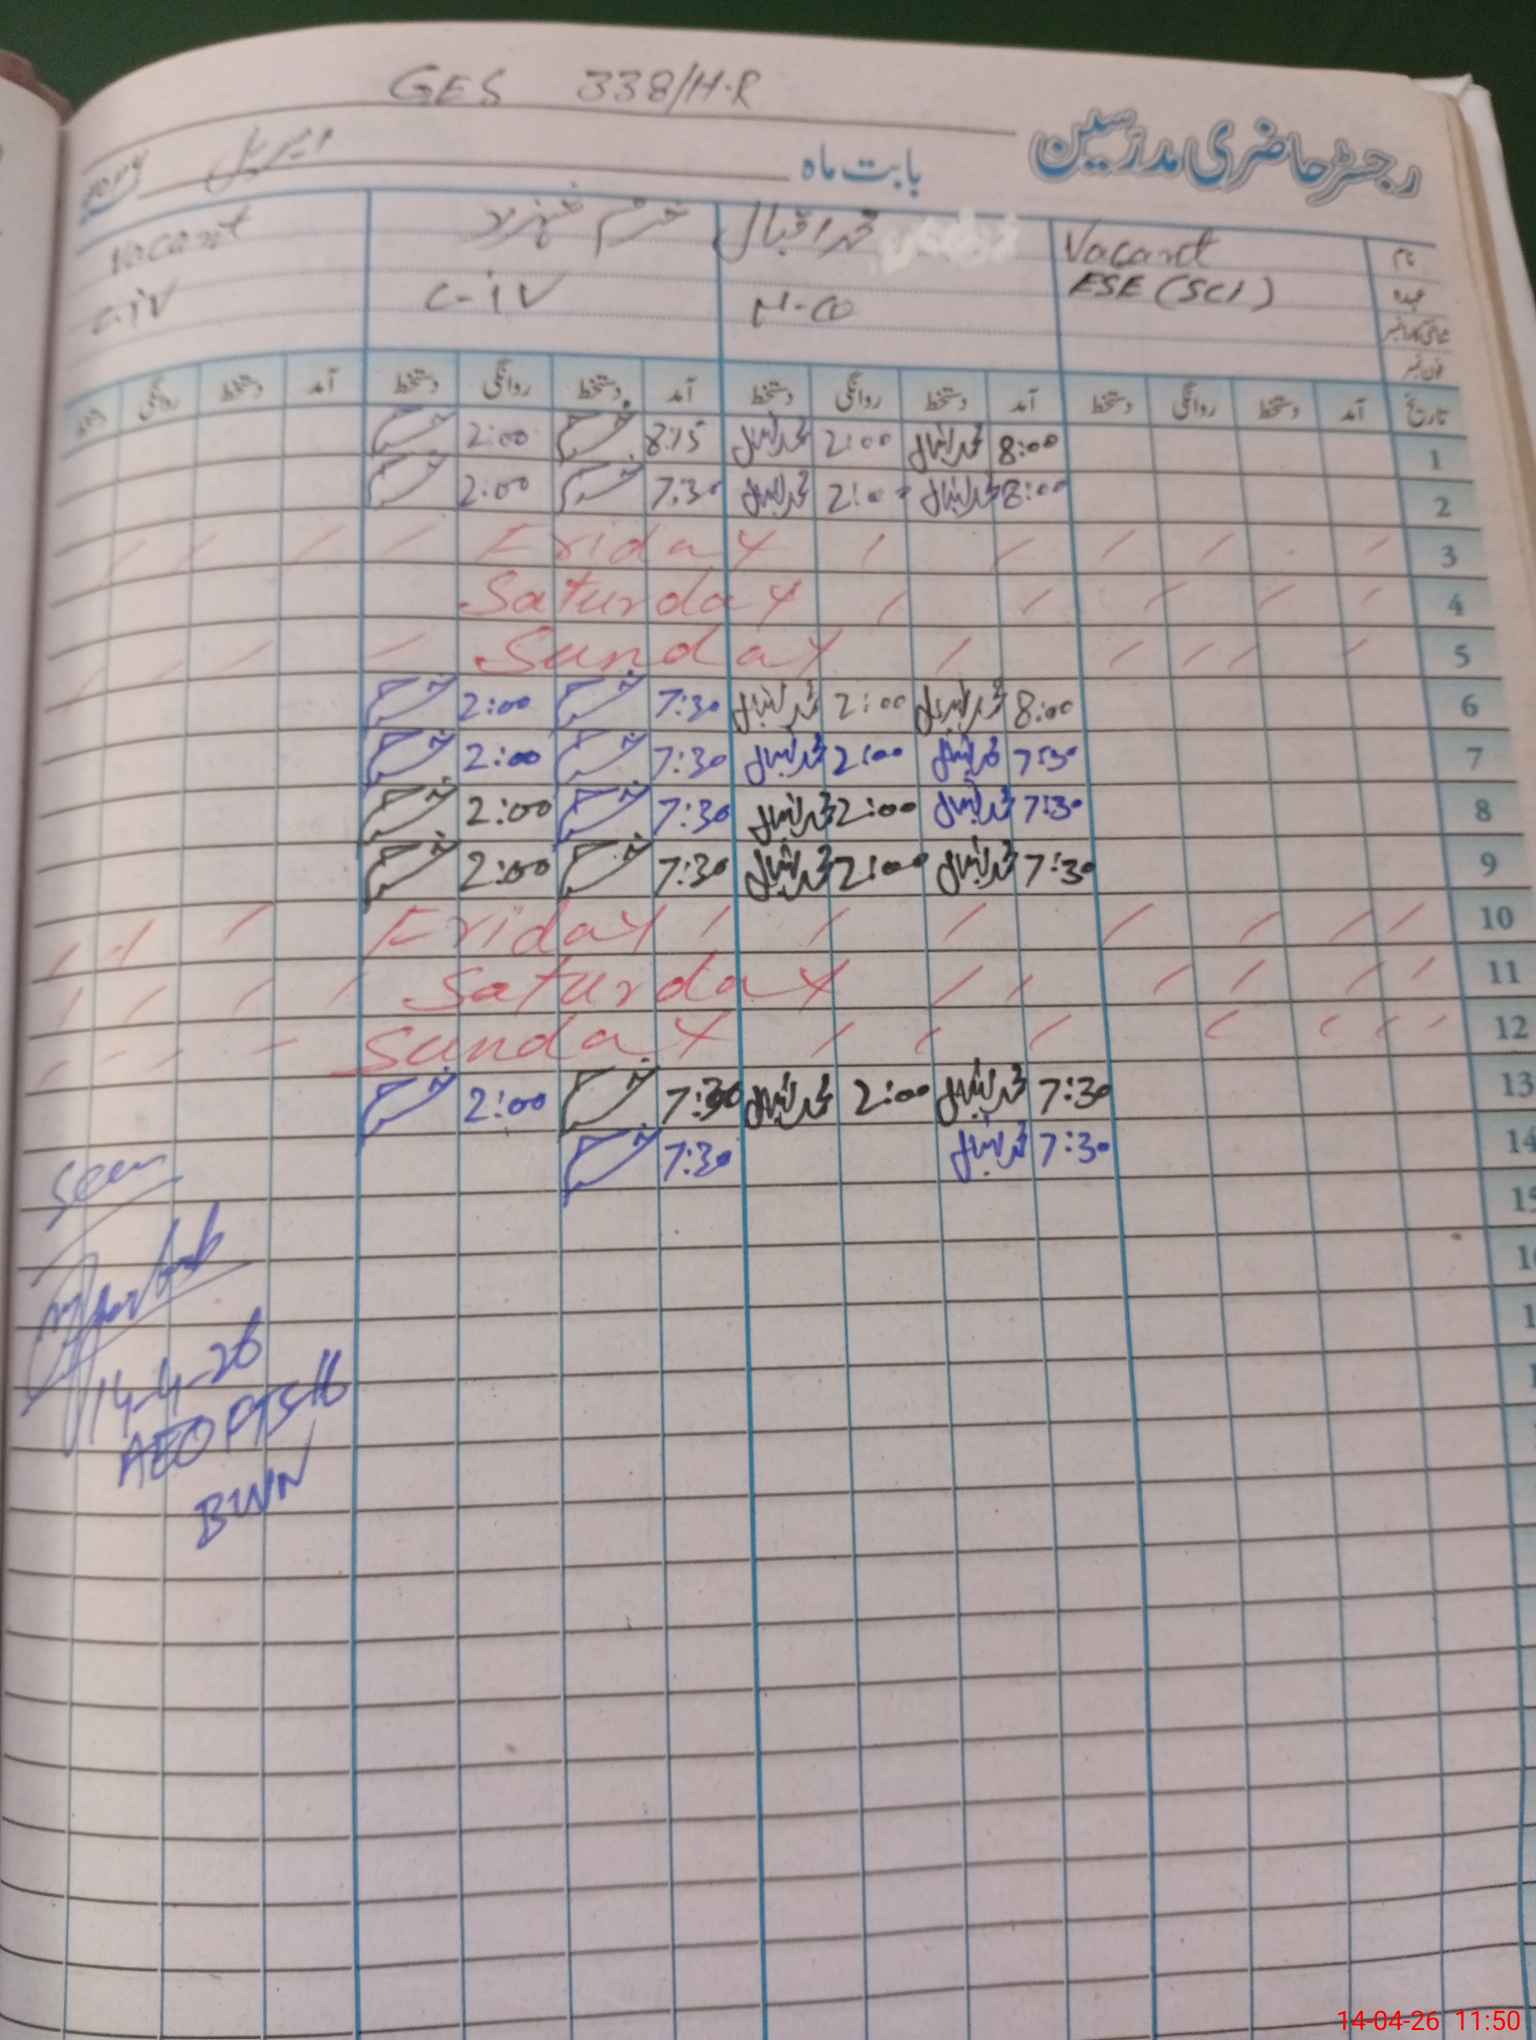 GES 338/H-R
رجسٹر حاضری مدرسین بابت ماہ اپریل
نام Vacant محمد اقبال خرم شہزاد Vacant
عہدہ ESE (SCI) N-CO C-iV C-iV
شناختی کارڈ نمبر
فون نمبر
تاریخ آمد دستخط روانگی دستخط آمد دستخط روانگی دستخط آمد دستخط روانگی دستخط آمد دستخط روانگی دستخط
1 8:00 محمد اقبال 2:00 محمد اقبال 8:15 2:00
2 8:00 محمد اقبال 2:00 محمد اقبال 7:30 2:00
3 Friday
4 Saturday
5 Sunday
6 8:00 محمد اقبال 2:00 محمد اقبال 7:30 2:00
7 7:30 محمد اقبال 2:00 محمد اقبال 7:30 2:00
8 7:30 محمد اقبال 2:00 محمد اقبال 7:30 2:00
9 7:30 محمد اقبال 2:00 محمد اقبال 7:30 2:00
10 Friday
11 Saturday
12 Sunday
13 7:30 محمد اقبال 2:00 محمد اقبال 7:30 2:00
14 7:30 محمد اقبال 7:30
15
Seen
14-4-26
AEO
BWN
14-04-26 11:50